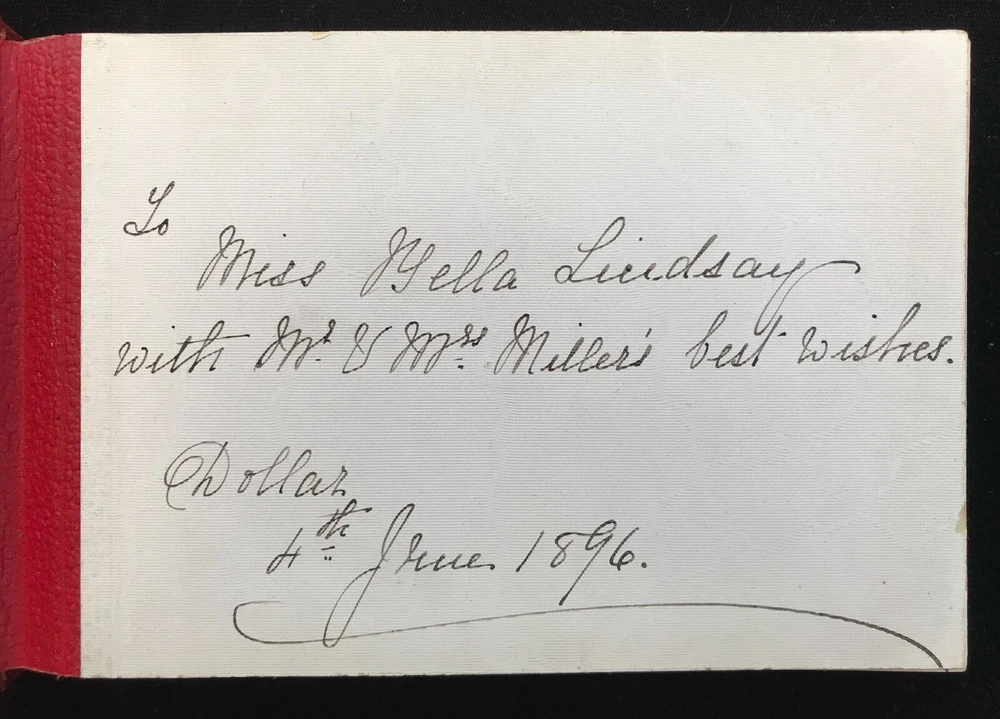 To
Miss Bella Lindsay
with Mr. & Mrs. Miller's best wishes.
Dollar
4th June 1896.